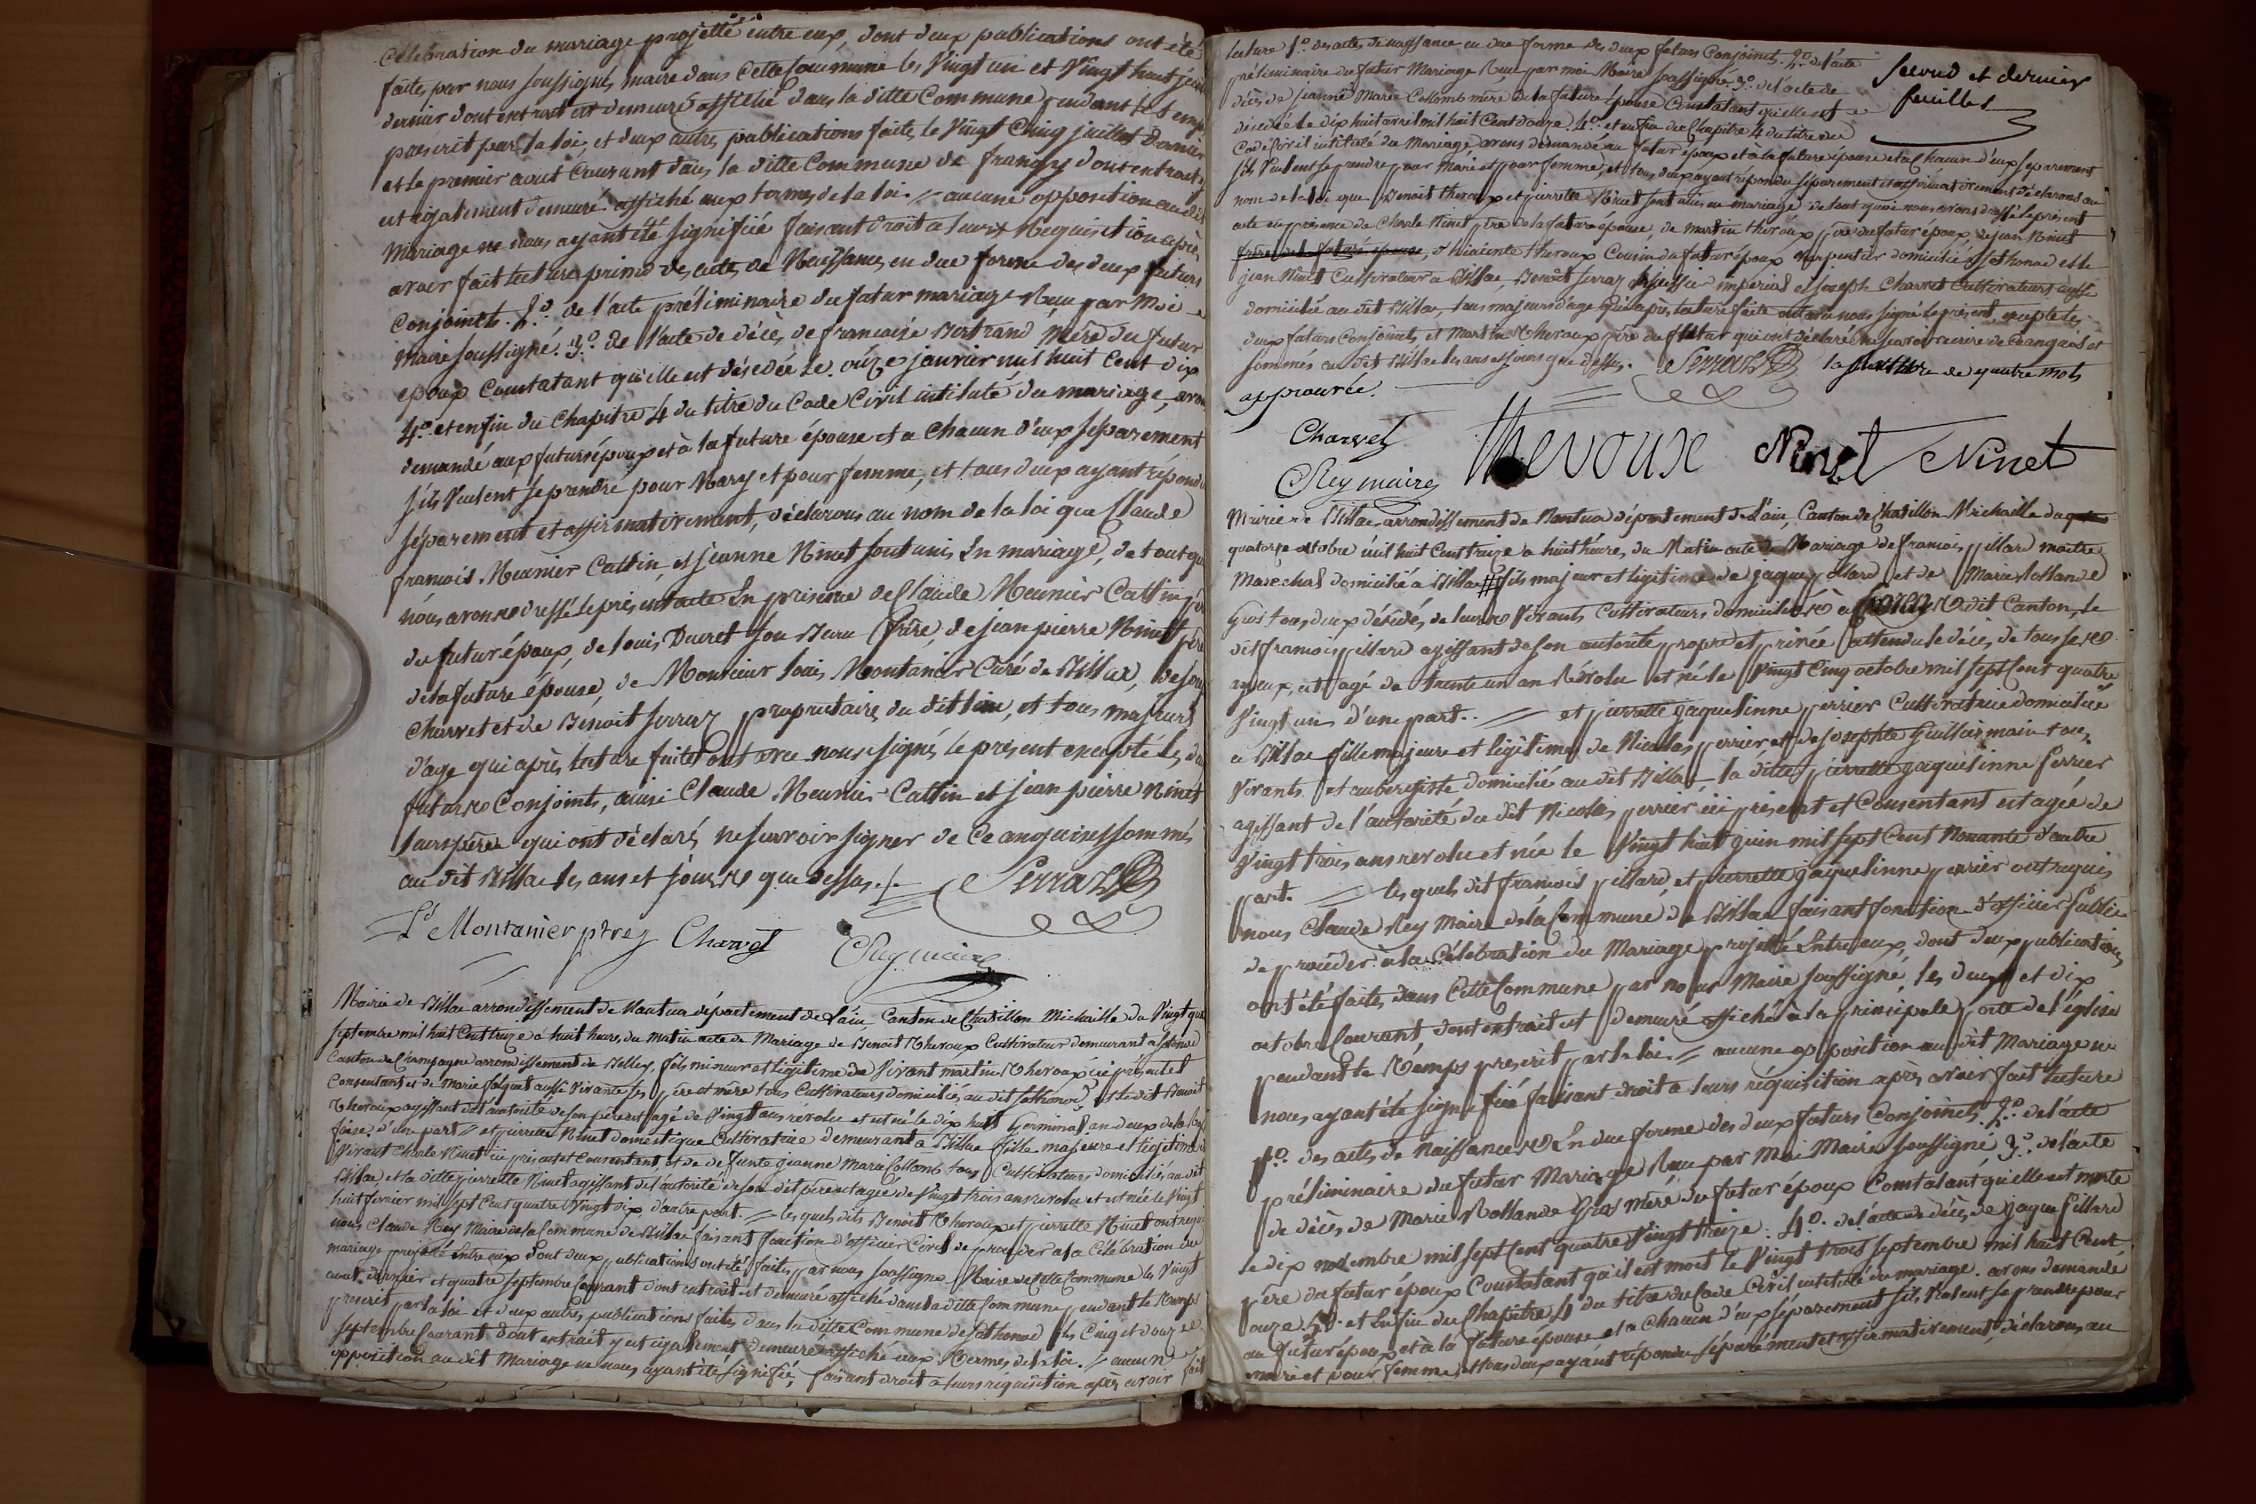 Célébration du mariage projetté entre eux, dont deux publications ont été
faites par nous soussigné, maire dans cette Commune les Vingt un et Vingt huit juin
dernier dont extrait est demeuré affiché dans la ditte Commune pendant le temp
prescrit par la loi, et deux autres publications faite le Vingt Cinq juillet dernier
et le premier aout Courant dans la ditte Commune de frangy dont extrait
est également demeuré affiché aux termes de la loi. aucune opposition au dit
Mariage ne nous ayant été signifiée faisant droit a leurs Requisition après
avoir fait lecture primo des actes de Naissances en due forme des deux futurs
Conjoints. 2.o de l'acte préliminaire du futur mariage Reçu par Moi
Maire soussigné. 3.o de l'acte de décès de francoise Bertrand Mère du futur
epoux Constatant qu'elle est décédée le onze janvier mil huit Cent dix
4.o et enfin du Chapitre 4 du titre du Code Civil intitulé du mariage, avons
demandé aux futurs époux et à la future épouse et a Chacun d'eux séparement
s'ils Veulent se prendre pour Mary et pour femme, et tous deux ayant répondu
séparement et affirmativement, déclarons au nom de la loi que Claude
francois Meunier Cattin, et jeanne Ninet sont unis En mariage, de tout quoi
nous avons dressé le présent acte En présence de Claude Meunier Cattin père
du futur époux, de Louis Ducret son Beau frère, de jean pierre Ninet père
de la future épouse, de Monsieur Louis Montanier Curé de Billiat, de
Charvet et de Benoit Serraz propriétaires du dit lieu, et tous majeurs
d'age qui après lecture faite ont avec nous signés le présent excepté les deux
futurs Conjoints, ainsi Claude Meunier Cattin et jean pierre Ninet
leurs pères qui ont déclarés ne scavoir signer de Ce enquis et sommés
au dit Billiat les ans et jours que dessus.
Serraz
Ls Montanier ptre Charvet Rey maire
Mairie de Billiat arrondissement de Nantua département de l'ain, Canton de Chatillon Michaille du Vingt
septembre mil huit Cent treize a huit heures du matin acte de Mariage de Benoit Theroux Cultivateur demeurant a Sothonod
Canton de Champagne arrondissement de Belley, fils mineur et légitime de Vivant martin Theroux ici présent et
Consentant et de Marie aussi Vivante ses père et mère tous Cultivateurs domiciliés au dit Sothonod, le dit Benoit
Theroux agissant de l'autorité de son père est agé de Vingt ans révolu et est né le dix huit Germinal an deux de la
d'une part et pierrette Ninet domestique Cultivatrice demeurant a Billiat fille majeure et légitime de
Vivant Charle Ninet ici présent et Consentant, et de défunte jeanne Marie Collomb tous Cultivateurs domiciliés au dit
Billiat, et la ditte pierrette Ninet agissant de l'autorité de son dit père est agée de Vingt trois ans révolu et est née le Vingt
huit fevrier mil sept Cent quatre Vingt dix d'autre part. les quels dits Benoit Theroux et pierrette Ninet ont requis
nous Claude Rey Maire de la Commune de Billiat faisant fonction d'officier Civil de proceder a la Célébration du
mariage projetté Entre eux dont deux publications ont été faites par nous soussigné Maire de cette Commune les Vingt
aout dernier et quatre septembre Courant dont extrait est demeuré affiché dans la ditte Commune pendant le temps
prescrit par la loi et deux autres publications faites dans la ditte Commune de Sothonod les Cinq et douze
septembre Courant, dont extrait y est egalement demeuré affiché aux termes de la loi. aucune
opposition au dit Mariage ne nous ayant été signifiée, faisant droit a leurs réquisition après avoir fait
second et dernier
feuillet
lecture 1.o des actes de naissance en due forme des deux futurs Conjoints. 2.o de l'acte
préliminaire du futur Mariage Reçu par moi Maire soussigné. 3.o de l'acte de
décès de jeanne Marie Collomb mère de la future épouse Constatant qu'elle est
décédée le dix huit avril mil huit Cent douze. 4.o et enfin du Chapitre 4 du titre du
Code Civil intitulé du Mariage avons demandé au futur époux et à la future épouse et a Chacun d'eux séparement
s'ils Veulent se prendre pour Mari et pour femme, et tous deux ayant répondu séparement et affirmativement déclarons au
nom de la loi que Benoit Theroux et pierrette Ninet sont unis en mariage de tout quoi nous avons dressé le présent
acte en présence de Charle Ninet père de la future épouse, de martin theroux père du futur epoux, de jean Ninet
frère de la future épouse, d'hiacinte theroux Cousin du futur époux charpentier domicilié a Sothonod et de
jean Ninet Cultivateur a Billiat, Benoit Serraz huissier impérial et joseph Charvet Cultivateurs aussi
domicilié au dit Billiat, tous majeurs d'age qui après lecture faite ont avec nous signé le présent, excepté les
deux futurs Conjoints, et Martin Theroux père du futur qui ont déclaré ne savoir ecrire de ce enquis et
sommés au dit Billiat les ans et jours que dessus. Serraz la rature de quatre mots
approuvée.
Charvet Thevoux Ninet Ninet
Rey maire
Mairie de Billiat arrondissement de Nantua département de l'ain, Canton de Chatillon Michaille du
quatorze octobre mil huit Cent treize a huit heures du Matin acte de Mariage de francois pillard maitre
Maréchal domicilié à Billiat # fils majeur et légitime de jaque pillard et de Marie Rollande
Gros tous deux décédés, de leurs Vivants Cultivateurs domiciliés a dit Canton, le
dit francois pillard agissant de son autorité propre et privée attendu le décès de tous ses
ayeux, est agé de trente un an Révolu et né le Vingt Cinq octobre mil sept Cent quatre
Vingt un d'une part. et pierrette jaquelinne perrier Cultivatrice domiciliée
a Billiat fille majeure et légitime de Nicolas perrier, et de josephte Guillermain tous
Vivants et aubergiste domicilié au dit Billiat la ditte pierrette jaquelinne perrier
agissant de l'autorité du dit Nicolas perrier ici présent et Consentant est agée de
Vingt trois ans revolu et née le Vingt huit juin mil sept Cent Nonante d'autre
part. les quels dit francois pillard, et pierrette jaquelinne perrier ont requis
nous Claude Rey Maire de la Commune de Billiat faisant fonction d'officier Public
de procéder à la Célébration du Mariage projetté Entre eux, dont deux publications
ont été faites dans Cette Commune par nous Maire soussigné, les deux et dix
octobre Courant, dont extrait est demeuré affiché à la principale porte de l'église
pendant le temps prescrit par la loi. aucune opposition au dit Mariage ne
nous ayant été signifiée faisant droit a leurs réquisition après avoir fait lecture
1.o des actes de Naissances En due forme des deux futurs Conjoints, 2.o de l'acte
préliminaire du futur Mariage Reçu par Moi Maire soussigné 3.o de l'acte
de décès de Marie Rollande Gros Mère du futur époux Constatant qu'elle est morte
le dix novembre mil sept Cent quatre Vingt treize. 4.o de l'acte de décès de jaque pillard
père du futur époux Constatant qu'il est mort le Vingt trois septembre mil huit Cent
onze 5.o et Enfin du Chapitre 4 du titre du Code Civil intitulé du mariage. avons demandé
au futur époux et à la future épouse et a Chacun d'eux séparement s'ils Veulent se prendre pour
mari et pour femme, et tous deux ayant répondu séparement et affirmativement, déclarons au